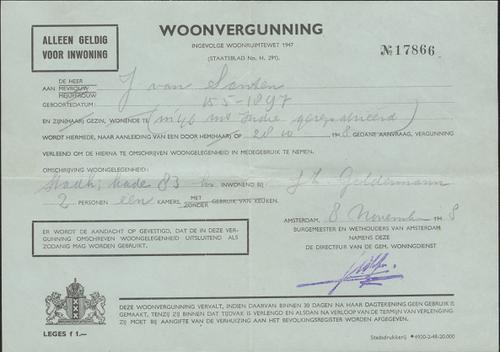 WOONVERGUNNING
INGEVOLGE WOONRUIMTEWET 1947
(STAATSBLAD No. H. 291).
ALLEEN GELDIG
VOOR INWONING
№17866
DE HEER
AAN MEVROUW
MEJUFFROUW
J van Santen
GEBOORTEDATUM 15-5-1897
EN ZIJN(HAAR) GEZIN, WONENDE TE Indië gerepatrieerd)
WORDT HIERMEDE, NAAR AANLEIDING VAN EEN DOOR HEM(HAAR) OP 28 10 - 1948 GEDANE AANVRAAG, VERGUNNING
VERLEEND OM DE HIERNA TE OMSCHRIJVEN WOONGELEGENHEID IN MEDEGEBRUIK TE NEMEN.
OMSCHRIJVING WOONGELEGENHEID:
Stadh. kade 83 hs INWONEND BIJ Geldermann
2 PERSONEN een KAMERS, MET ZONDER GEBRUIK VAN KEUKEN.
AMSTERDAM, 8 November 1948
BURGEMEESTER EN WETHOUDERS VAN AMSTERDAM
NAMENS DEZE
DE DIRECTEUR VAN DE GEM. WONINGDIENST
ER WORDT DE AANDACHT OP GEVESTIGD, DAT DE IN DEZE VER-
GUNNING OMSCHREVEN WOONGELEGENHEID UITSLUITEND ALS
ZODANIG MAG WORDEN GEBRUIKT.
DEZE WOONVERGUNNING VERVALT, INDIEN DAARVAN BINNEN 30 DAGEN NA HAAR DAGTEKENING GEEN GEBRUIK IS
GEMAAKT, TENZIJ ZIJ BINNEN DAT TIJDVAK IS VERLENGD EN ALSDAN NA VERLOOP VAN DE TERMIJN VAN VERLENGING
ZIJ MOET BIJ AANGIFTE VAN DE VERHUIZING AAN HET BEVOLKINGSREGISTER WORDEN AFGEGEVEN.
LEGES f 1.—
Stadsdrukkerij 4920-2-48-20.000